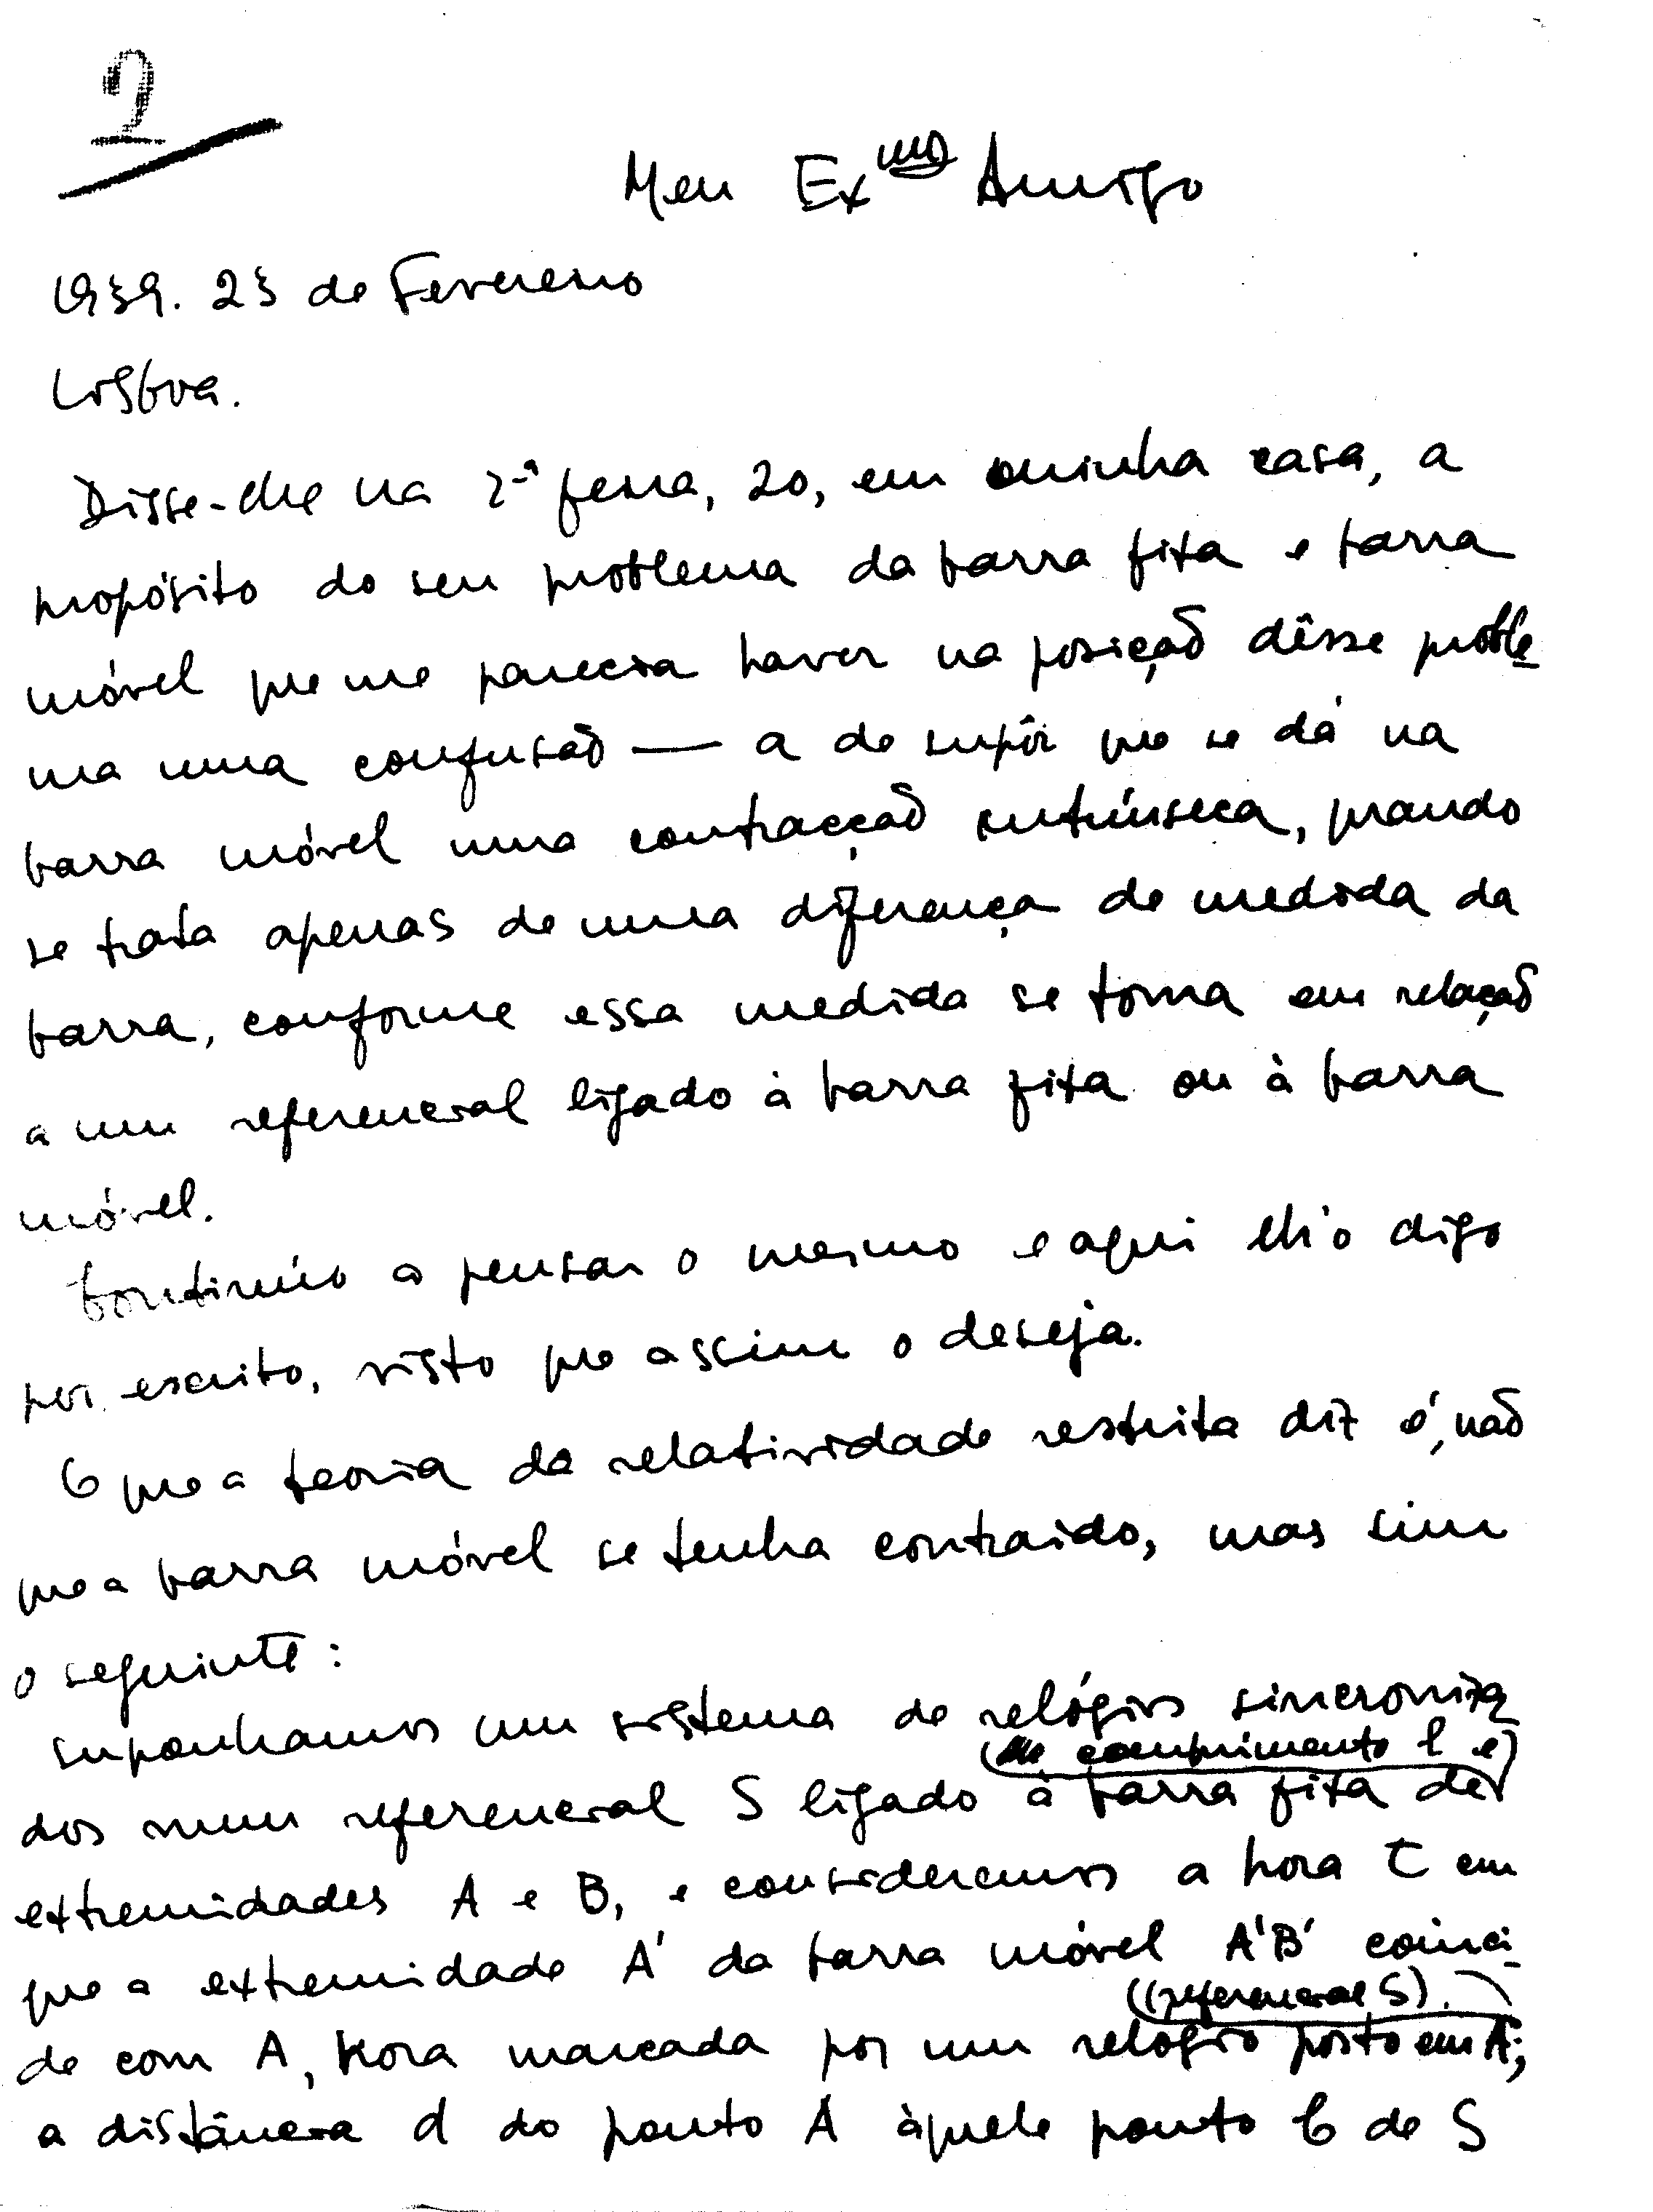 2
Meu Exmo Amigo
1939. 23 de Fevereiro
Lisboa.
Disse-lhe na 2.ª feira, 20, em minha casa, a
propósito do seu problema da barra fixa e barra
móvel que me parecia haver na posição dêsse proble
ma uma confusão — a de supôr que se dá na
barra móvel uma contracção intrínseca, quando
se trata apenas de uma diferença de medida da
barra, conforme essa medida se toma em relação
a um referencial ligado à barra fixa ou à barra
móvel.
Continúo a pensar o mesmo e aqui lh'o digo
por escrito, visto que assim o deseja.
O que a teoria da relatividade restrita diz é, não
que a barra móvel se tenha contraido, mas sim
o seguinte:
suponhamos um sistema de relógios sincroniza
(de comprimento l e)
dos num referencial S ligado à barra fixa de
extremidades A e B, e consideremos a hora t em
que a extremidade A' da barra móvel A'B' coinci-
(referencial S).
de com A, hora marcada por um relógio posto em A;
a distância d do ponto A àquele ponto C de S